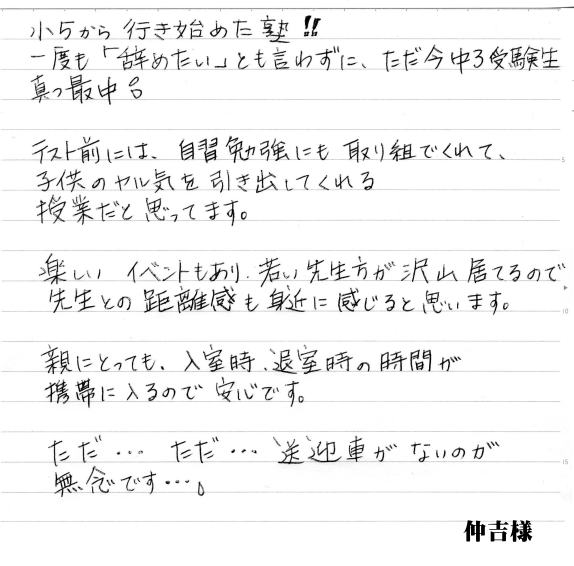 小5から行き始めた塾!!
一度も「辞めたい」とも言わずに、ただ今中3受験生
真っ最中。
テスト前には、自習勉強にも取り組でくれて、
子供のヤル気を引き出してくれる
授業だと思ってます。
楽しいイベントもあり、若い先生方が沢山居てるので
先生との距離感も身近に感じると思います。
親にとっても、入室時、退室時の時間が
携帯に入るので安心です。
ただ… ただ… 送迎車がないのが
無念です…。
仲吉様
5
10
15